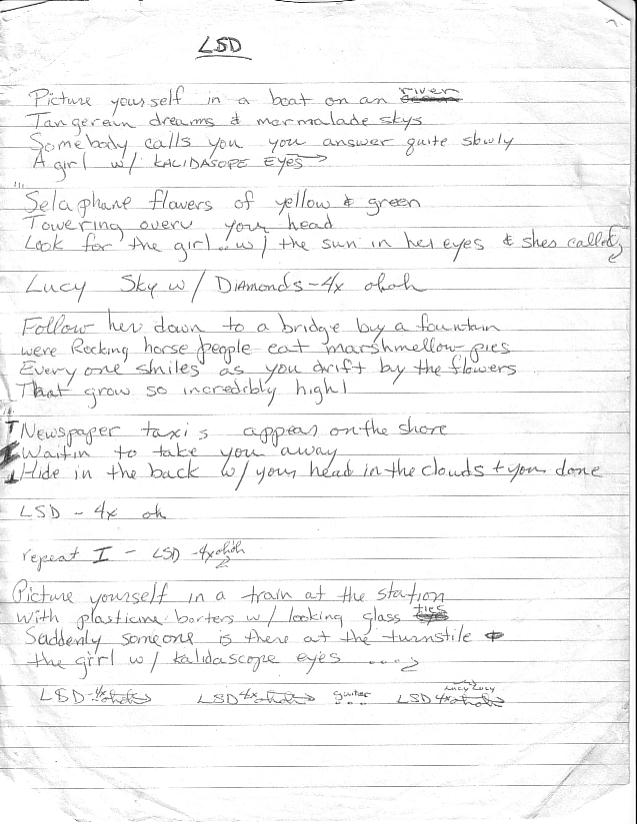 LSD
Picture yourself in a boat on an river
Tangerein dreams & marmalade skys
Somebody calls you you answer quite slowly
A girl w/ KALIDASOPE EYES
Selaphane flowers of yellow & green
Towering overu your head
Look for the girl.. w/ the sun in her eyes & shes called
Lucy Sky w/ Diamonds-4x ohoh
Follow her down to a bridge by a fountain
were Rocking horse people eat marshmellow pies
Every one smiles as you drift by the flowers
That grow so incredibly high!
I Newspaper taxis appear on the shore
Waitin to take you away
Hide in the back w/ your head in the clouds + you done
LSD - 4x oh
repeat I - LSD -4x ohoh 2
Picture yourself in a train at the station
With plasticine borters w/ looking glass ties
Suddenly someone is there at the turnstile
the girl w/ kalidascope eyes ....
LSD-4x ohoh LSD 4x ohoh guitar ... LSD 4x ohoh Lucy Lucy